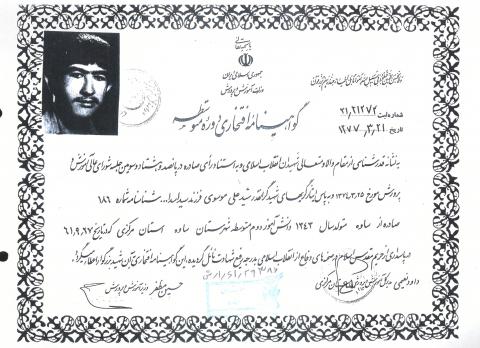 باسمه تعالی
جمهوری اسلامی ایران
وزارت آموزش و پرورش
گواهینامه افتخاری دوره متوسطه
شماره ثبت ۲۱/۲۱۲۷۲
تاریخ ۱۳۷۷/۳/۲۱
به نشانه قدرشناسی از مقام والا و متعالی شهیدان انقلاب اسلامی و به استناد رأی صادره در پانصد و هشتاد و سومین جلسه شورای عالی آموزش و
پرورش مورخ ۱۳۷۴/۳/۲۵ و به پاس ایثارگریهای شهید گرانقدر سید علی موسوی فرزند سید شناسنامه شماره ۱۸۶
صادره از ساوه متولد سال ۱۳۴۳ دانش آموز دوم متوسطه شهرستان ساوه استان مرکزی که در تاریخ ۶۱/۹/۶۷
در پاسداری از حریم مقدس اسلام در جبهه‌های دفاع از انقلاب اسلامی به درجه رفیع شهادت نائل گردیده، این گواهینامه افتخاری به آن شهید بزرگوار اعطا می‌گردد.
داود نعیمی مدیر کل آموزش و پرورش استان مرکزی
حسین مظفر وزیر آموزش و پرورش